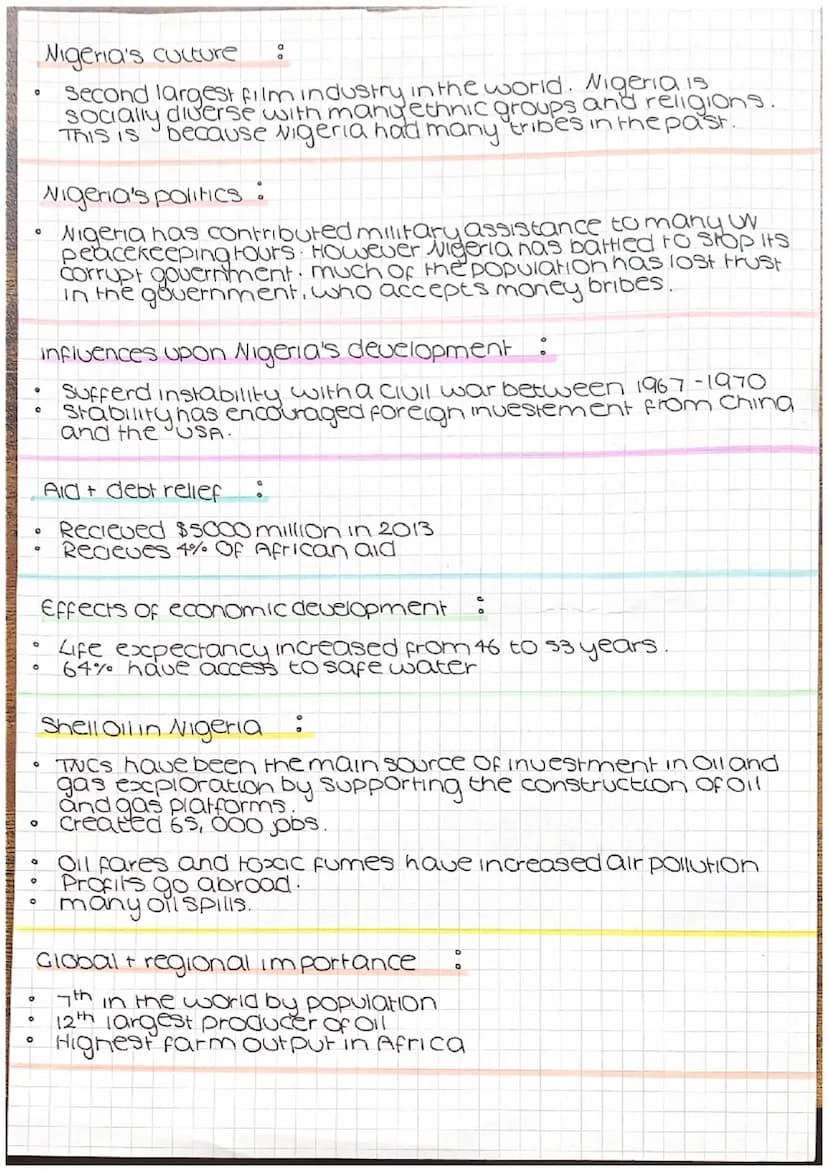 Nigeria's culture :
• Second largest film industry in the world. Nigeria is
socially diverse with many ethnic groups and religions.
This is because Nigeria had many tribes in the past.
Nigeria's politics :
• Nigeria has contributed military assistance to many UN
peacekeeping tours. However Nigeria has battled to stop its
corrupt government. much of the population has lost trust
in the government, who accepts money bribes.
influences upon Nigeria's development :
• Sufferd instability with a civil war between 1967-1970
• Stability has encouraged foreign investement from China
and the USA.
Aid + debt relief :
• Recieved $5000 million in 2013
• Recieves 4% of African aid
Effects of economic development :
• Life expectancy increased from 46 to 53 years.
• 64% have access to safe water
Shell oil in Nigeria :
• TNCs have been the main source of investment in oil and
gas exploration by supporting the construction of oil
and gas platforms.
• created 65,000 jobs.
• Oil fares and toxic fumes have increased air pollution
• Profits go abroad.
• many oil spills.
Global + regional importance :
• 7th in the world by population
• 12th largest producer of oil
• Highest farm output in Africa